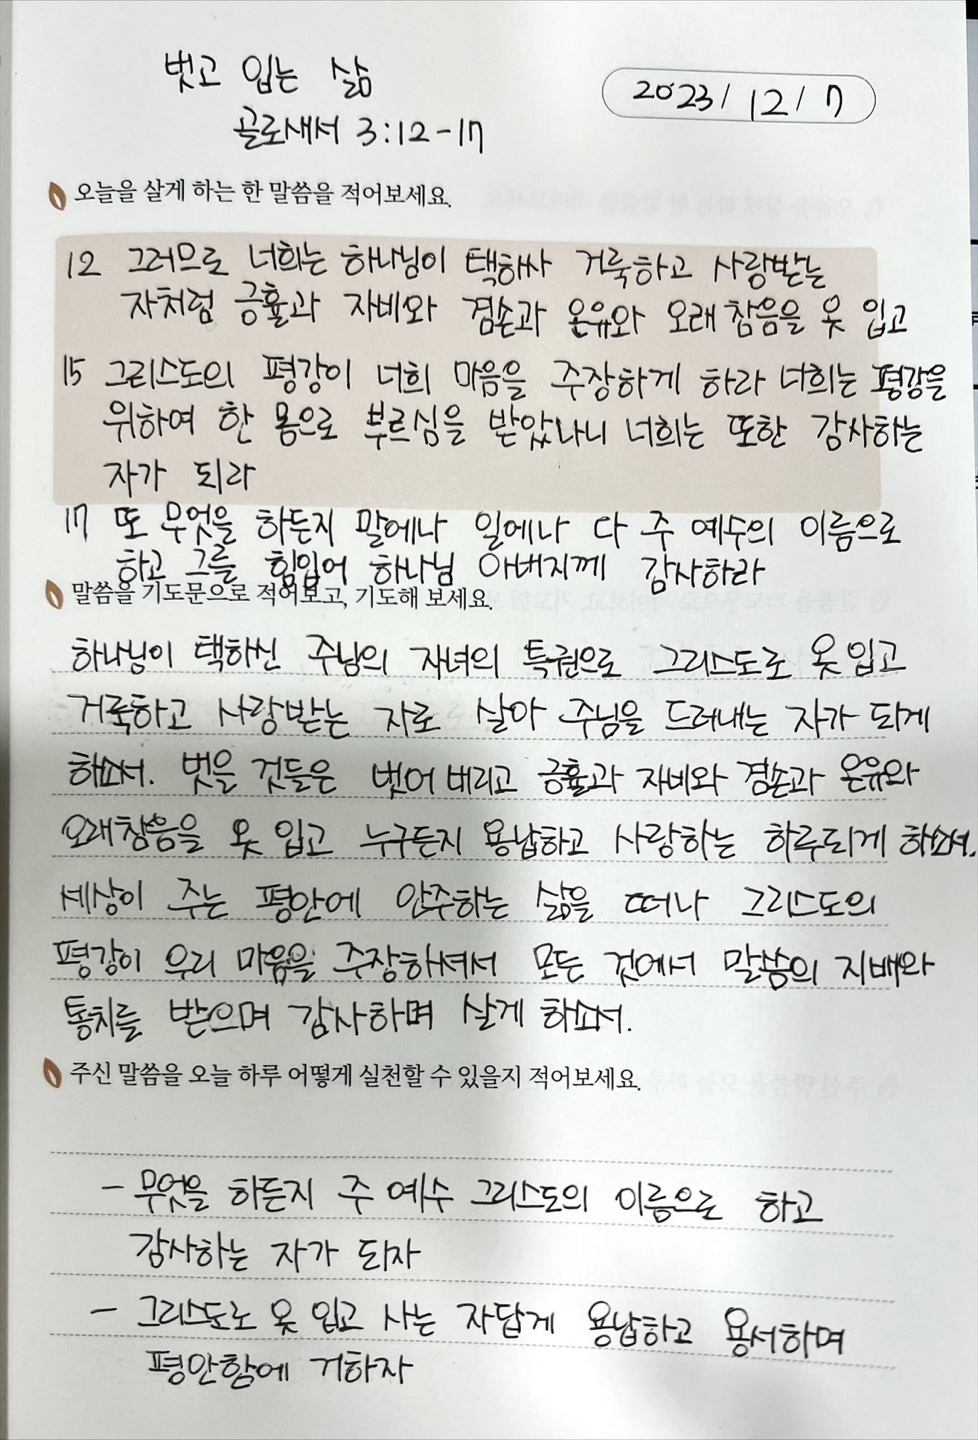 벗고 입는 삶
2023/12/7
골로새서 3:12-17
오늘을 살게 하는 한 말씀을 적어보세요.
12 그러므로 너희는 하나님이 택하사 거룩하고 사랑받는
자처럼 긍휼과 자비와 겸손과 온유와 오래 참음을 옷 입고
15 그리스도의 평강이 너희 마음을 주장하게 하라 너희는 평강을
위하여 한 몸으로 부르심을 받았나니 너희는 또한 감사하는
자가 되라
17 또 무엇을 하든지 말에나 일에나 다 주 예수의 이름으로
하고 그를 힘입어 하나님 아버지께 감사하라
말씀을 기도문으로 적어보고, 기도해 보세요.
하나님이 택하신 주님의 자녀의 특권으로 그리스도로 옷 입고
거룩하고 사랑받는 자로 살아 주님을 드러내는 자가 되게
하소서. 벗을 것들은 벗어 버리고 긍휼과 자비와 겸손과 온유와
오래참음을 옷 입고 누구든지 용납하고 사랑하는 하루되게 하소서.
세상이 주는 평안에 안주하는 삶을 떠나 그리스도의
평강이 우리 마음을 주장하셔서 모든 것에서 말씀의 지배와
통치를 받으며 감사하며 살게 하소서.
주신 말씀을 오늘 하루 어떻게 실천할 수 있을지 적어보세요.
- 무엇을 하든지 주 예수 그리스도의 이름으로 하고
감사하는 자가 되자
- 그리스도로 옷 입고 사는 자답게 용납하고 용서하며
평안함에 거하자